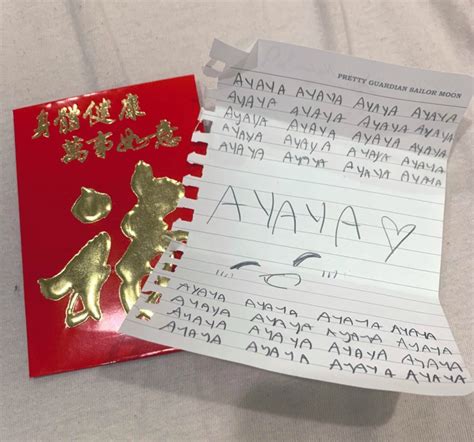 身體健康
萬事如意
福
PRETTY GUARDIAN SAILOR MOON
AYAYA AYAYA AYAYA AYAYA
AYAYA AYAYA AYAYA AYAYA
AYAYA AYAYA AYAYA AYAYA
AYAYA AYAYA AYAYA AYAYA
AYAYA AYAYA AYAYA AYAYA
AYAYA ♡
AYAYA AYAYA AYAYA AYAYA
AYAYA AYAYA AYAYA AYAYA
AYAYA AYAYA AYAYA AYAYA
AYAYA AYAYA AYAYA AYAYA